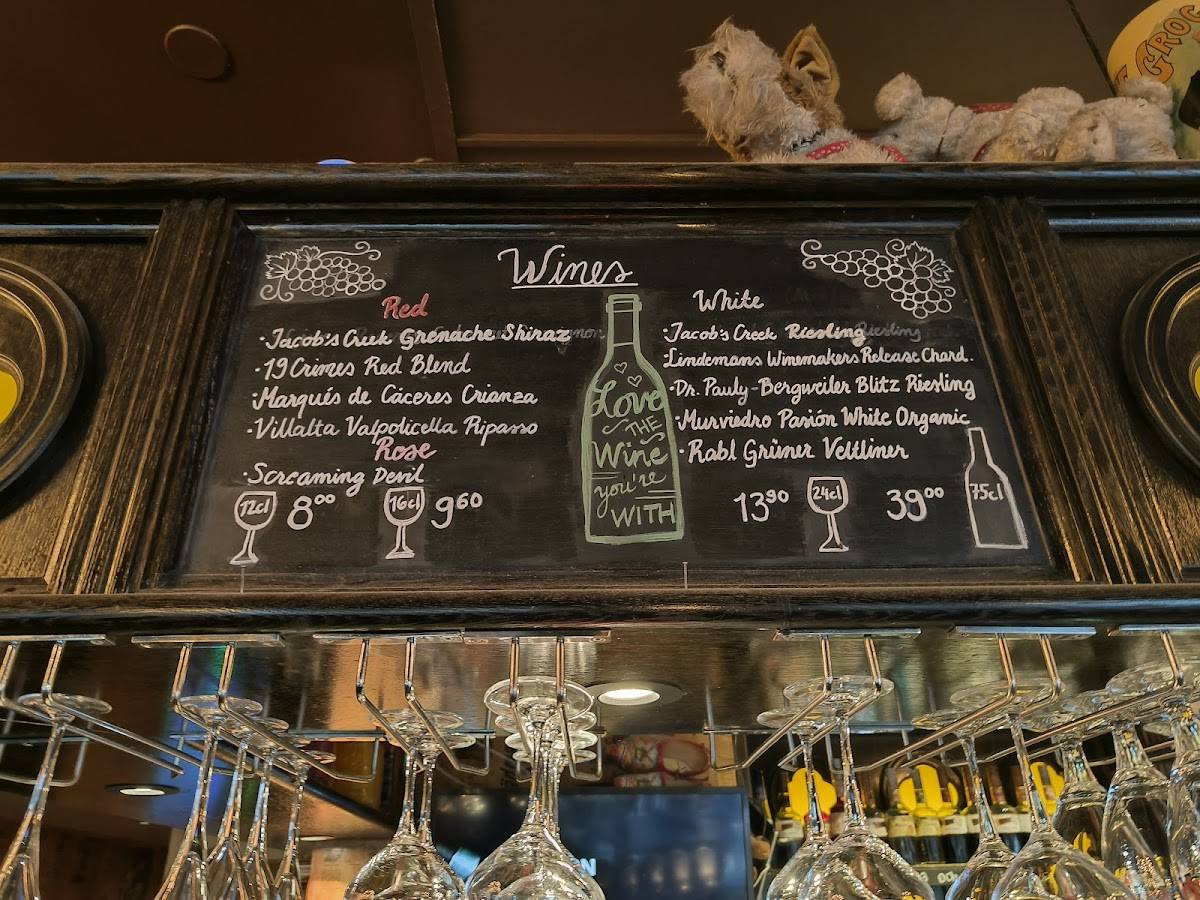 GROC
Wines
Red
·Jacob's Creek Grenache Shiraz
·19 Crimes Red Blend
·Marqués de Cáceres Crianza
·Villalta Valpolicella Ripasso
Rose
·Screaming Devil
12cl 8⁰⁰ 16cl 9⁶⁰
Love
THE
Wine
you're
WITH
White
·Jacob's Creek Riesling Riesling
·Lindemans Winemakers Release Chard.
·Dr. Pauly-Bergweiler Blitz Riesling
·Murviedro Pasión White Organic
·Rabl Grüner Veltliner
13⁹⁰ 24cl 39⁰⁰ 75cl